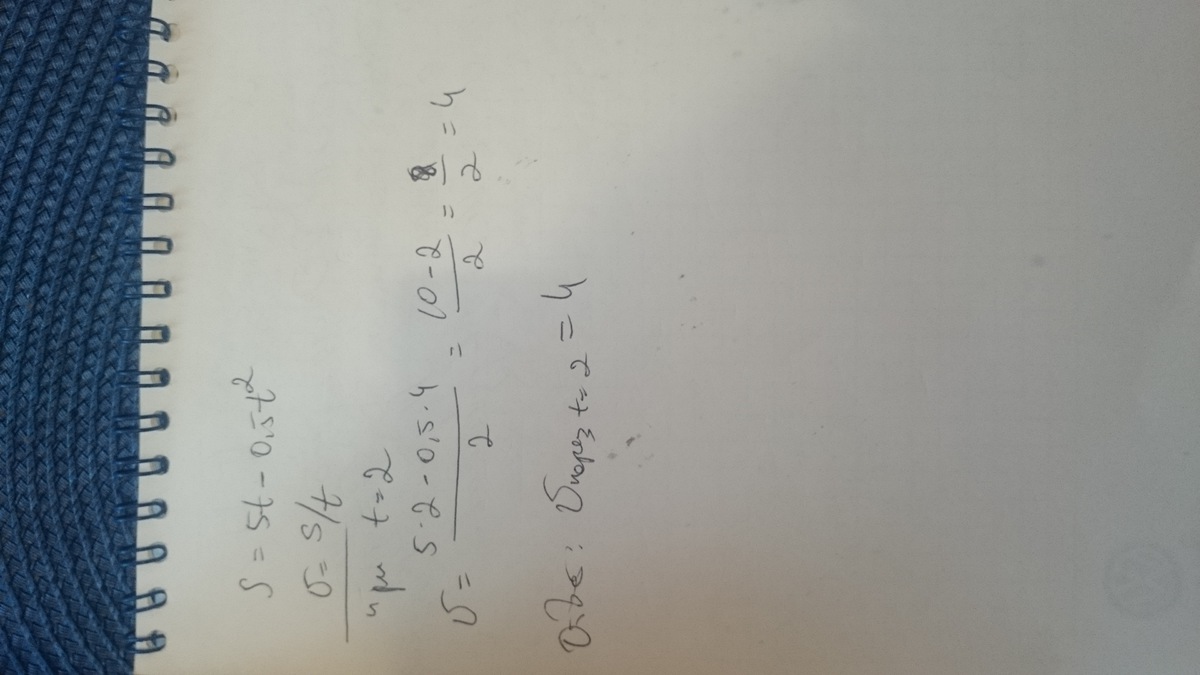 S = 5t - 0,5t²
v = S/t
при t = 2
v = (5·2 - 0,5·4)/2 = (10 - 2)/2 = 8/2 = 4
v через t=2 = 4